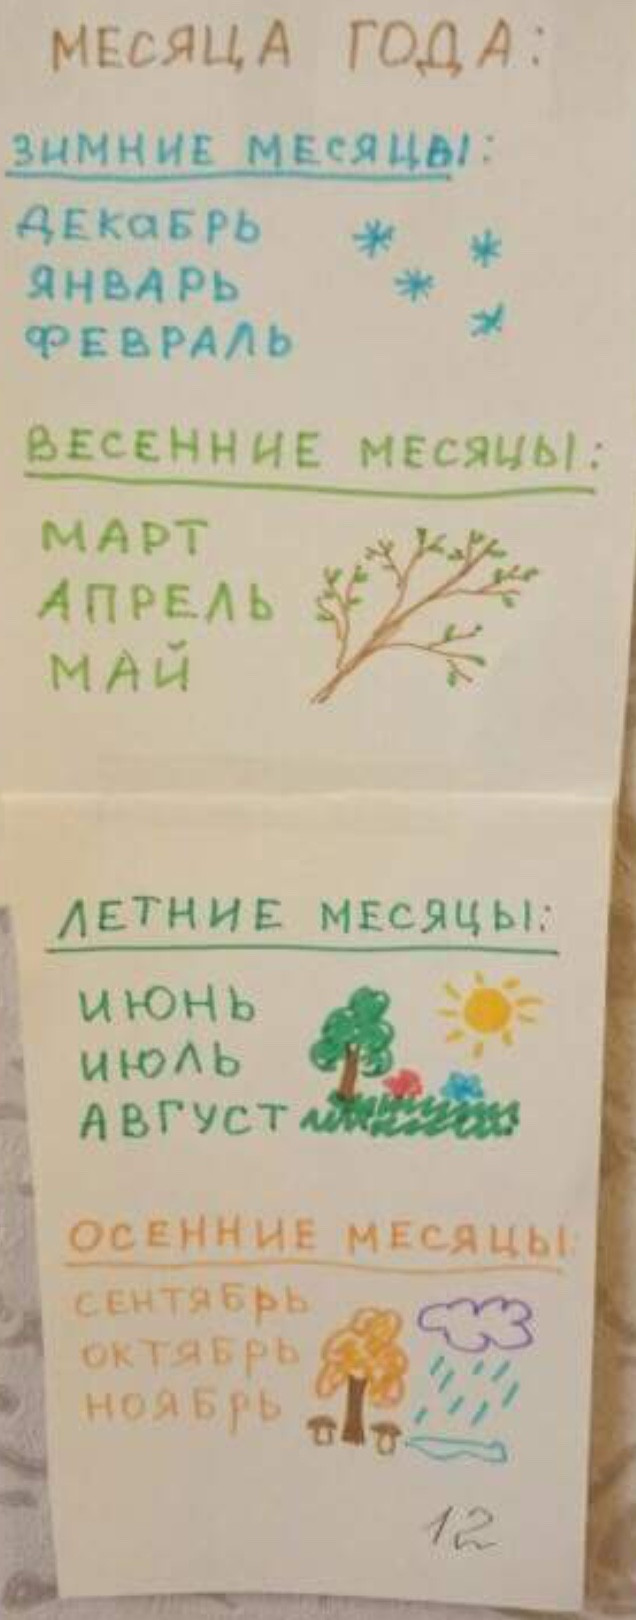 МЕСЯЦА ГОДА:
ЗИМНИЕ МЕСЯЦЫ:
ДЕКаБРЬ
ЯНВАРЬ
ФЕВРАЛЬ
ВЕСЕННИЕ МЕСЯЦЫ:
МАРТ
АПРЕЛЬ
МАЙ
ЛЕТНИЕ МЕСЯЦЫ:
ИЮНЬ
ИЮЛЬ
АВГУСТ
ОСЕННИЕ МЕСЯЦЫ:
СЕНТЯБРЬ
ОКТЯБРЬ
НОЯБРЬ
12